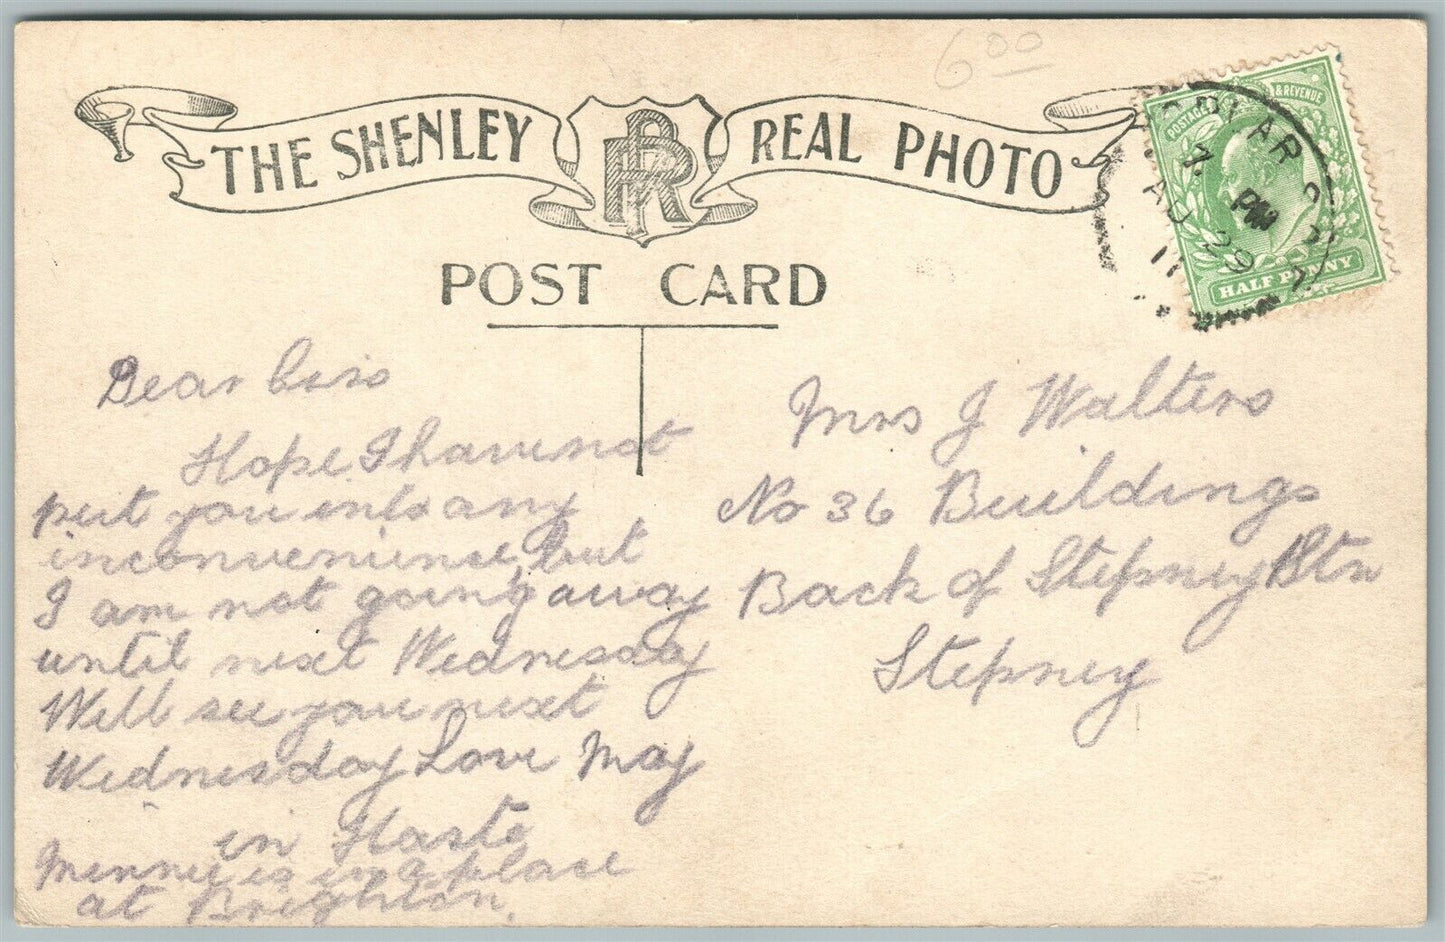 6 00
THE SHENLEY REAL PHOTO
PR
POST CARD
POSTAGE & REVENUE
HALF PENNY
7. PM
AU 29
11
Dear Ciss
Hope I have not
put you into any
inconvenience but
I am not going away
until next Wednesday
Will see you next
Wednesday Love May
in Haste
Minnie is in a place
at Brighton.
Mrs J Walters
No 36 Buildings
Back of Stepney Stn
Stepney